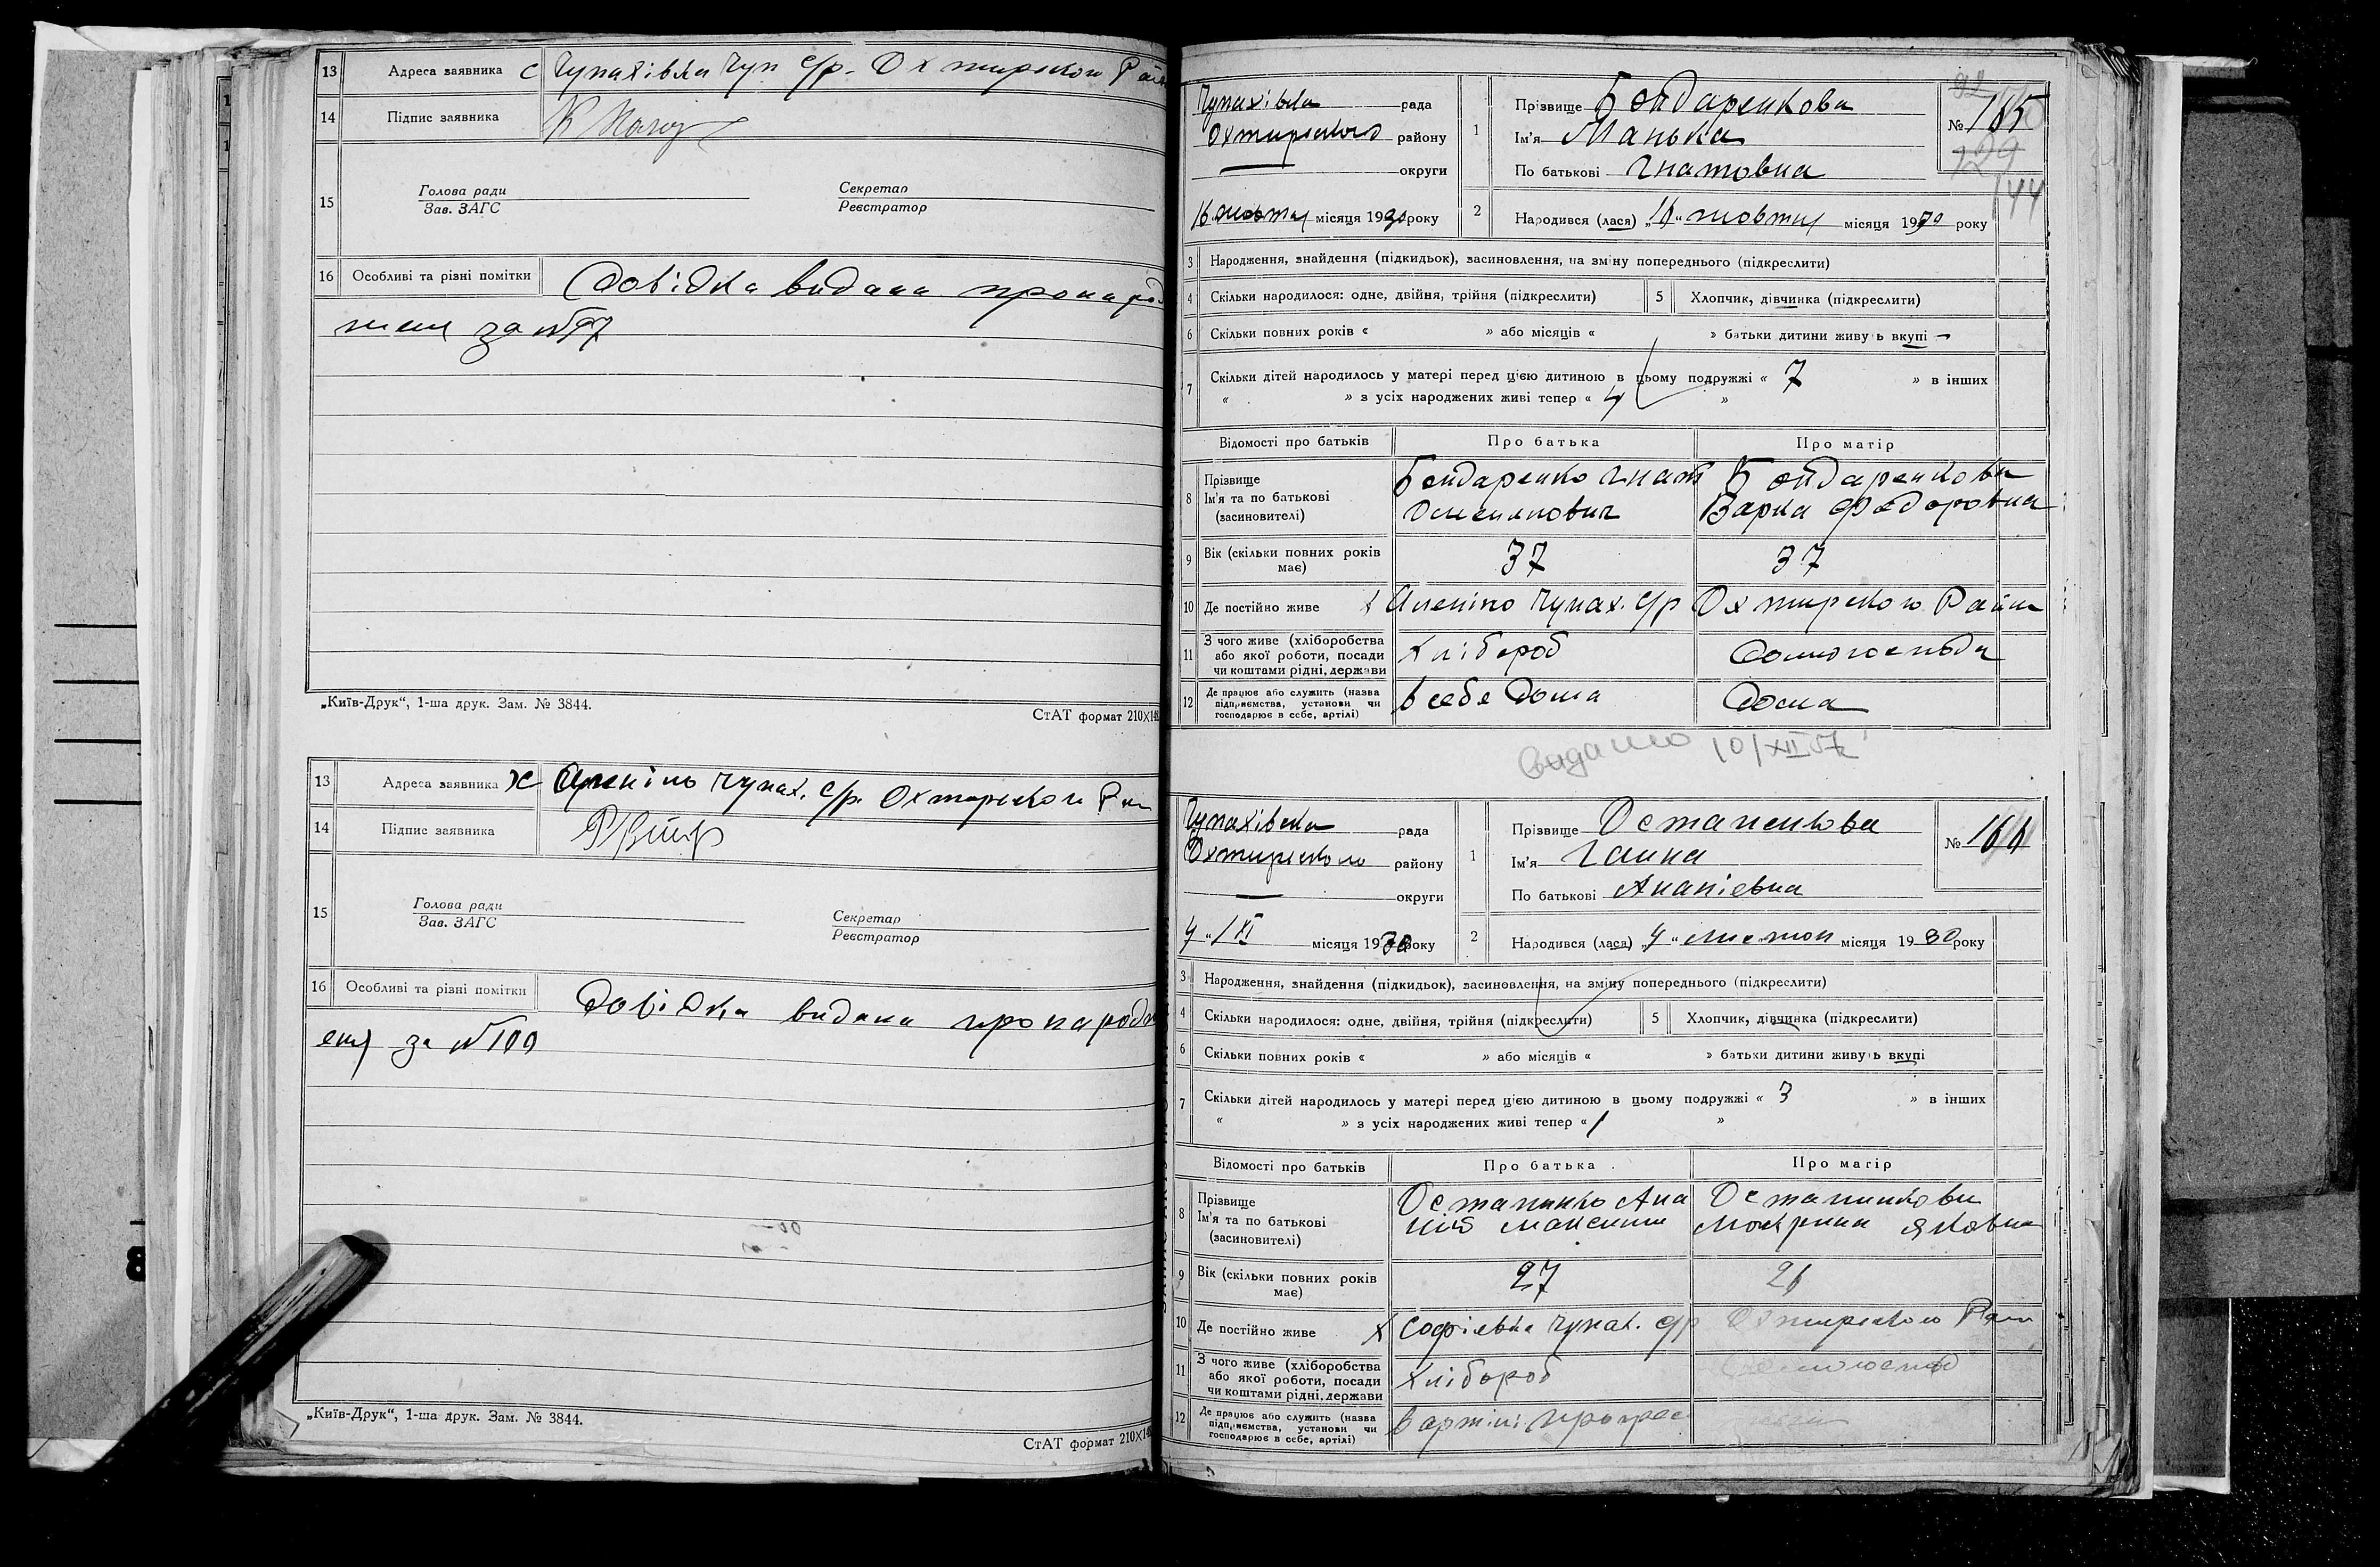 13 Адреса заявника с Чупахівка Чуп с/р. Охтирского Рай
14 Підпис заявника
15 Голова ради Секретар
Зав. ЗАГС Реєстратор
16 Особливі та різні помітки Довідка видана про народ
жен за №97
„Київ-Друк“, 1-ша друк. Зам. № 3844.
СтАТ формат 210X148
13 Адреса заявника х Чупах. с/р. Охтирского
14 Підпис заявника
15 Голова ради Секретар
Зав. ЗАГС Реєстратор
16 Особливі та різні помітки Довідка видана про народж
еня за №100
„Київ-Друк“, 1-ша друк. Зам. № 3844.
СтАТ формат 210X148
Чупахівка рада
Охтирского району
округи
16 жовтня місяця 1930 року
1 Прізвище Бондаренкова
Ім'я Манька
По батькові Гнатовна
№ 165
129
144
2 Народився (лася) „16“ жовтня місяця 1930 року
3 Народження, знайдення (підкидьок), засиновлення, на зміну попереднього (підкреслити)
4 Скільки народилося: одне, двійня, трійня (підкреслити) 5 Хлопчик, дівчинка (підкреслити)
6 Скільки повних років « » або місяців « » батьки дитини живуть вкупі
7 Скільки дітей народилось у матері перед цією дитиною в цьому подружжі « 7 » в інших
« » з усіх народжених живі тепер « 4 »
Відомості про батьків Про батька Про матір
8 Прізвище Бондаренко Гнат Бондаренкова
Ім'я та по батькові Варка Федоровна
(засиновителі)
9 Вік (скільки повних років має) 37 37
10 Де постійно живе х Чупах. с/р Охтирского Району
11 З чого живе (хліборобства або якої роботи, посади чи коштами рідні, держави хлібороб домогоспода
12 Де працює або служить (назва підприємства, установи чи господарює в себе, артілі) в себе дома дома
Видано 10/XII 57
Чупахівска рада
Охтирского району
округи
4 „/XI місяця 1930 року
1 Прізвище Остапенкова
Ім'я Ганна
По батькові Ананіевна
№ 166
2 Народився (лася) „4“ листоп місяця 1930 року
3 Народження, знайдення (підкидьок), засиновлення, на зміну попереднього (підкреслити)
4 Скільки народилося: одне, двійня, трійня (підкреслити) 5 Хлопчик, дівчинка (підкреслити)
6 Скільки повних років « » або місяців « » батьки дитини живуть вкупі
7 Скільки дітей народилось у матері перед цією дитиною в цьому подружжі « 3 » в інших
« » з усіх народжених живі тепер « 1 »
Відомості про батьків Про батька Про матір
8 Прізвище Остапенко Ана Остапенкова
Ім'я та по батькові ній Максим Мокрина Яковна
(засиновителі)
9 Вік (скільки повних років має) 27 26
10 Де постійно живе х Софіевка Чупах. с/р Охтирского Рай
11 З чого живе (хліборобства або якої роботи, посади чи коштами рідні, держави хлібороб домогоспод
12 Де працює або служить (назва підприємства, установи чи господарює в себе, артілі) в артілі Прогрес